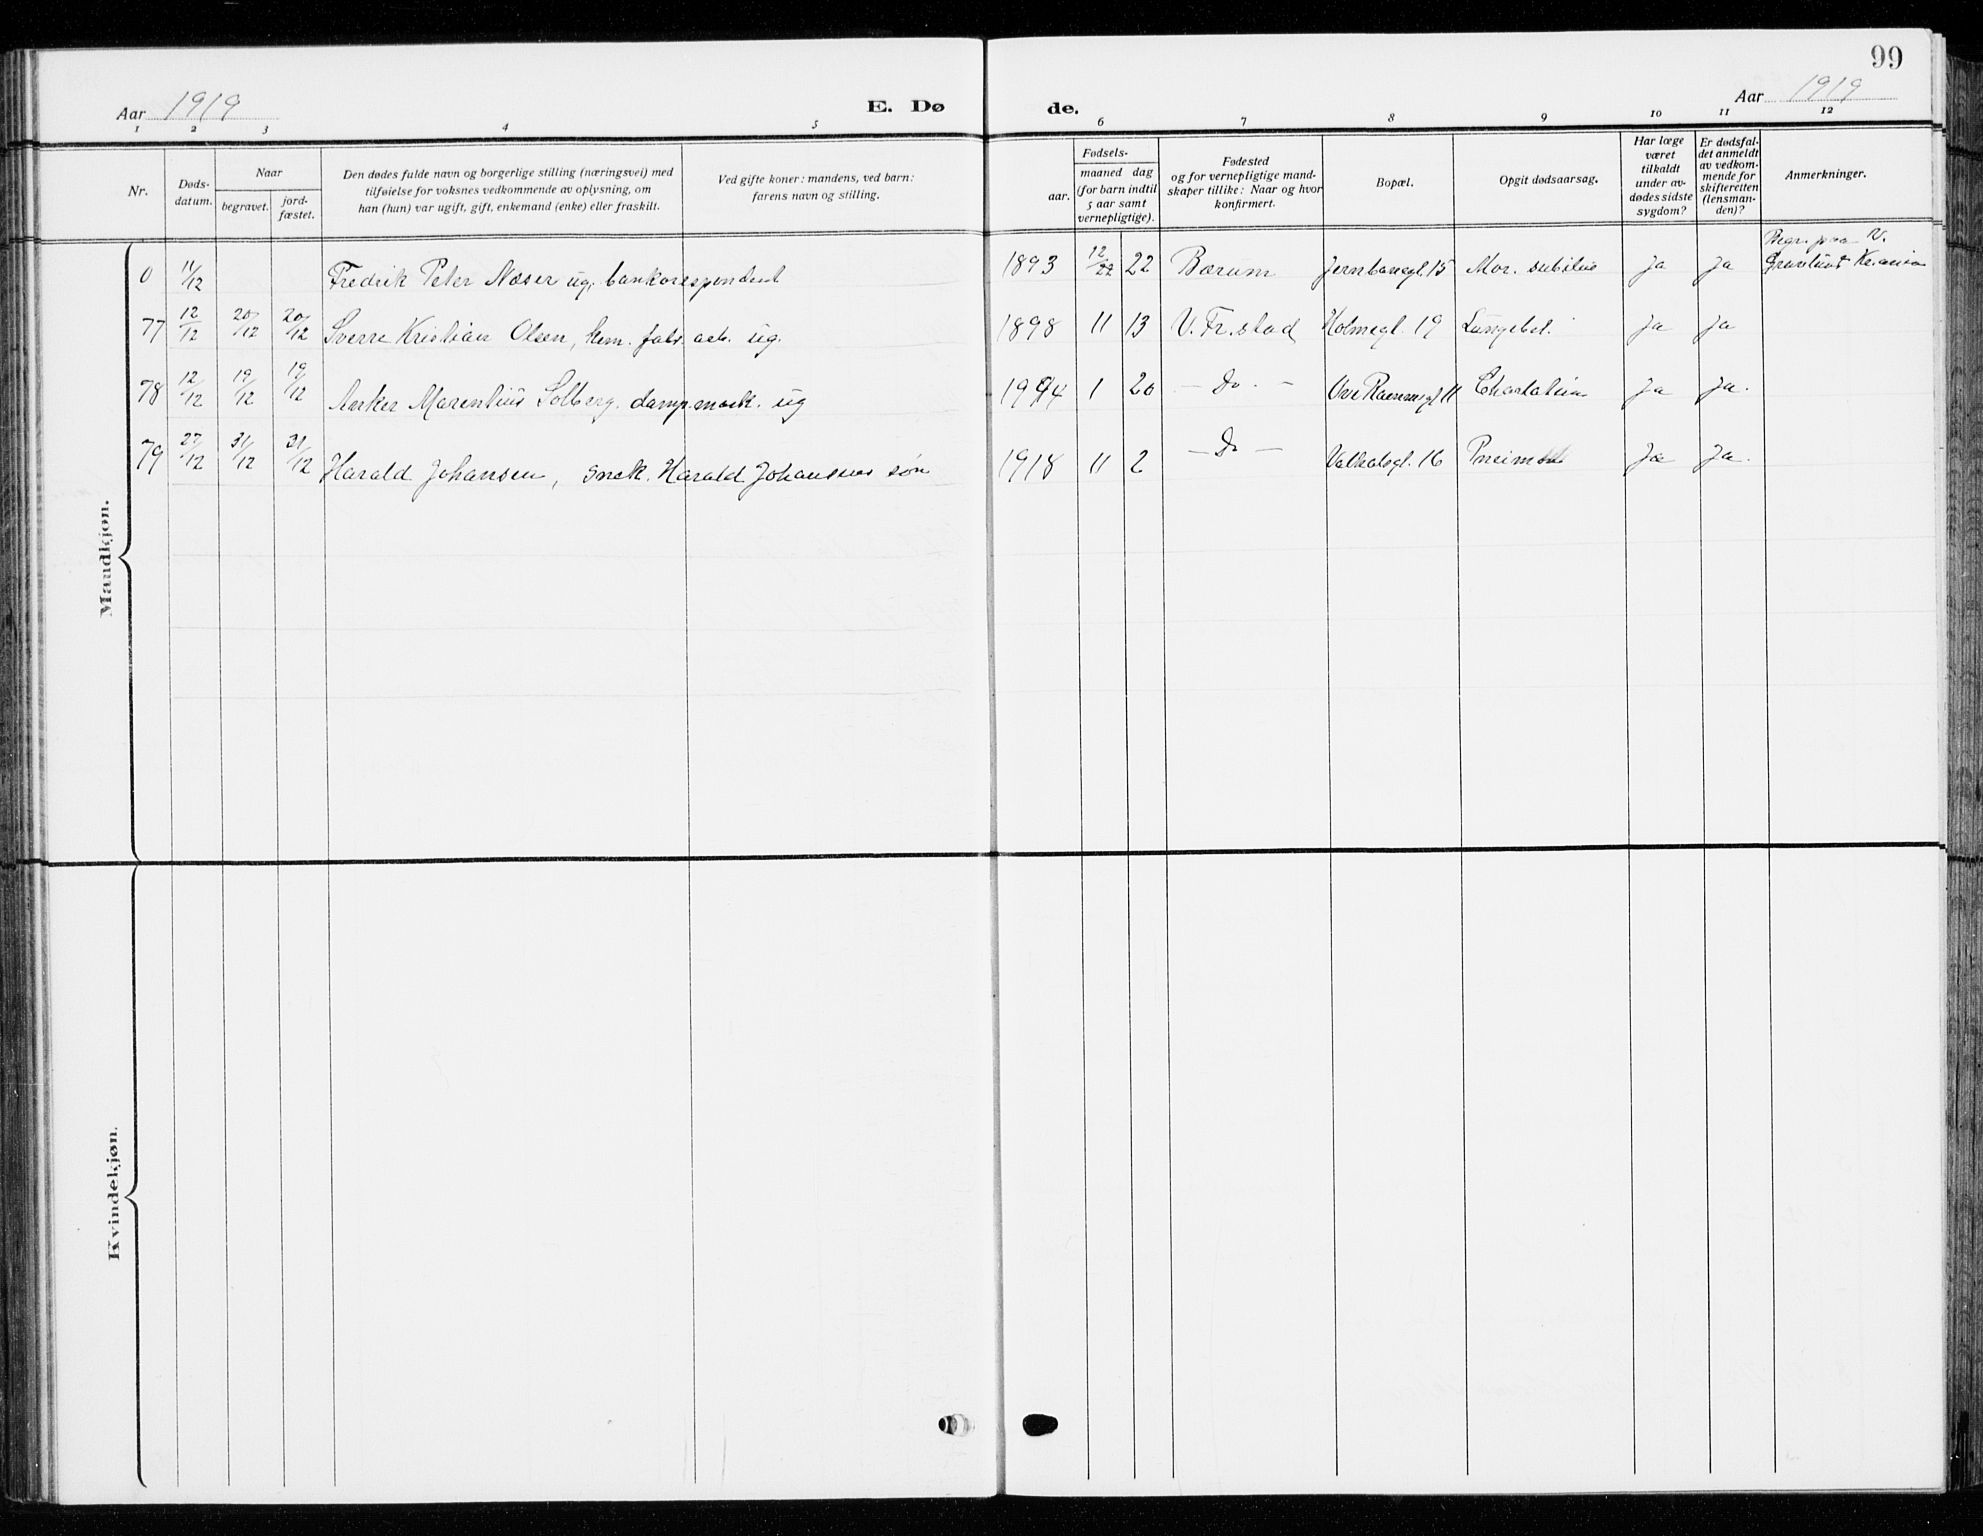 99
Aar 1919 E. Dø de. Aar 1919
1 2 3 4 5 6 7 8 9 10 11 12
Nr.
Døds-
datum.
Naar
begravet.
jord-
fæstet.
Den dødes fulde navn og borgerlige stilling (næringsvei) med
tilføielse for voksnes vedkommende av oplysning, om
han (hun) var ugift, gift, enkemand (enke) eller fraskilt.
Ved gifte koner: mandens, ved barn:
farens navn og stilling.
Fødsels-
aar.
maaned dag
(for barn indtil
5 aar samt
vernepligtige).
Fødested
og for vernepligtige mand-
skaper tillike: Naar og hvor
konfirmert.
Bopæl.
Opgit dødsaarsag.
Har læge
været
tilkaldt
under av-
dødes sidste
sygdom?
Er dødsfal-
det anmeldt
av vedkom-
mende for
skifteretten
(lensman-
den)?
Anmerkninger.
Mandkjøn.
0 11/12 Fredrik Peter Næser ug. bankorespondent 1893 12/22 22 Bærum Jernbanegt. 15 Mor. subitus Ja Ja Begr. paa V. Gravlund Kr.ania
77 12/12 20/12 20/12 Sverre Kristian Olsen, kem. fabr. arb. ug. 1898 11 13 V. Fr.stad Holmegt. 19 Lungebet. Ja Ja
78 12/12 19/12 19/12 Anker Marentius Solberg. damp.mask. ug 1994 1 20 - Do. - Ove Ramsgt 11 Ja Ja.
79 27/12 31/12 31/12 Harald Johansen, snek. Harald Johansens søn 1918 11 2 - Do - 16 Ja Ja.
Kvindekjøn.